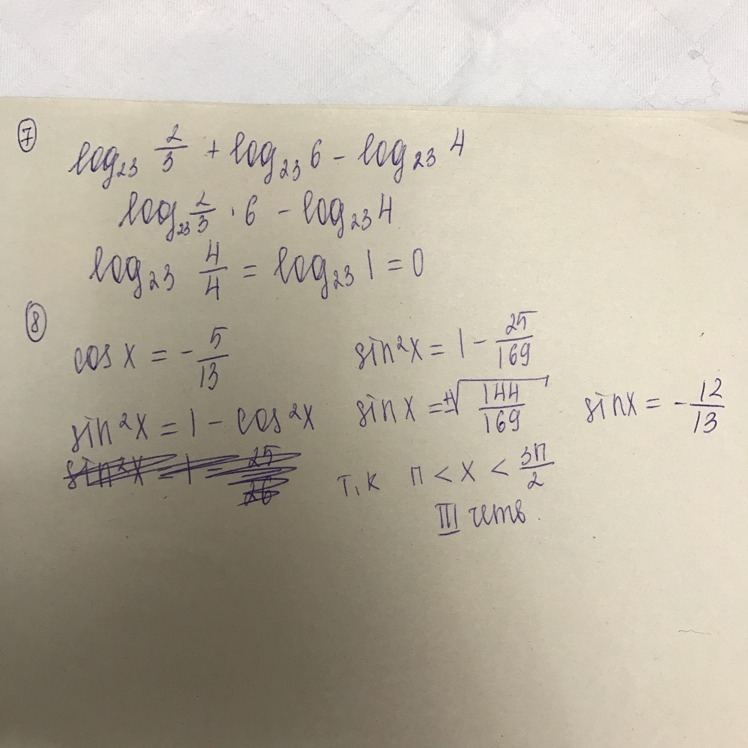 ⑦
log₂₃ 2/3 + log₂₃ 6 - log₂₃ 4
log₂₃ 2/3 · 6 - log₂₃ 4
log₂₃ 4/4 = log₂₃ 1 = 0
⑧
cos x = - 5/13
sin²x = 1 - cos²x
sin²x = 1 - 25/26
sin²x = 1 - 25/169
sin x = ±√144/169
sin x = - 12/13
т.к п < x < 3п/2
III четв.